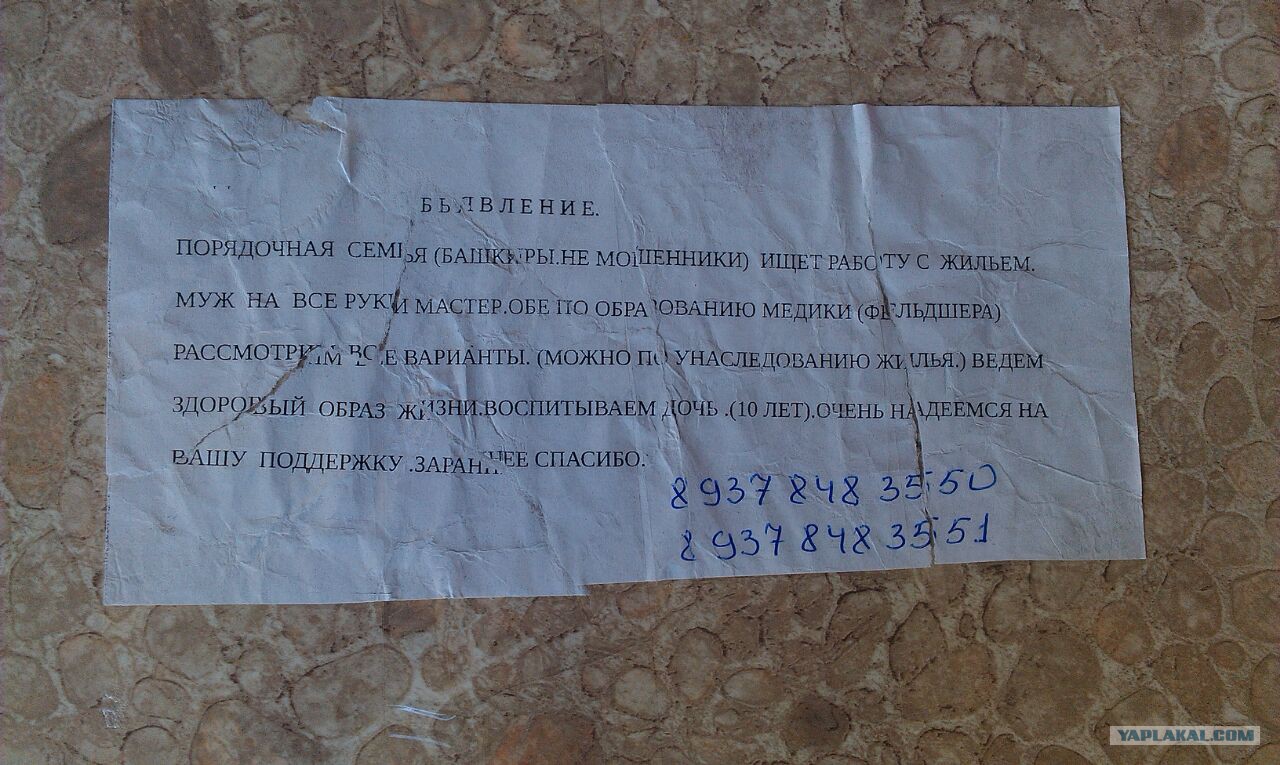 БЪЯВЛЕНИЕ.
ПОРЯДОЧНАЯ СЕМЬЯ (БАШКИРЫ.НЕ МОШЕННИКИ) ИЩЕТ РАБОТУ С ЖИЛЬЕМ.
МУЖ НА ВСЕ РУКИ МАСТЕР.ОБЕ ПО ОБРАЗОВАНИЮ МЕДИКИ (ФЕЛЬДШЕРА)
РАССМОТРИМ ВСЕ ВАРИАНТЫ. (МОЖНО ПО УНАСЛЕДОВАНИЮ ЖИЛЬЯ.) ВЕДЕМ
ЗДОРОВЫЙ ОБРАЗ ЖИЗНИ.ВОСПИТЫВАЕМ ДОЧЬ .(10 ЛЕТ).ОЧЕНЬ НАДЕЕМСЯ НА
ВАШУ ПОДДЕРЖКУ .ЗАРАНЕЕ СПАСИБО.
8 937 848 35 50
8 937 848 35 51
YAPLAKAL.COM